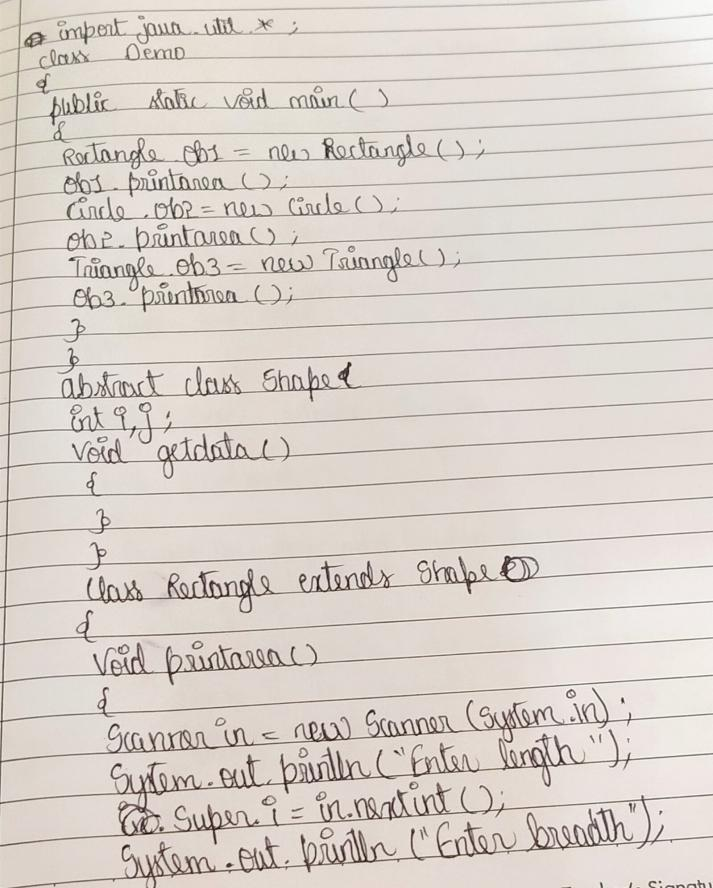 import java.util.*;
class Demo
{
public static void main()
{
Rectangle ob1 = new Rectangle();
ob1.printarea();
Circle.ob2=new Circle();
ob2.printarea();
Triangle.ob3=new Triangle();
ob3.printarea();
}
}
abstract class Shape{
int i,j;
void getdata()
{
}
}
Class Rectangle extends Shape
{
Void printarea()
{
Scanner in = new Scanner (System.in);
System.out.println("Enter length");
Super.i = in.nextint();
System.out.println ("Enter breadth");